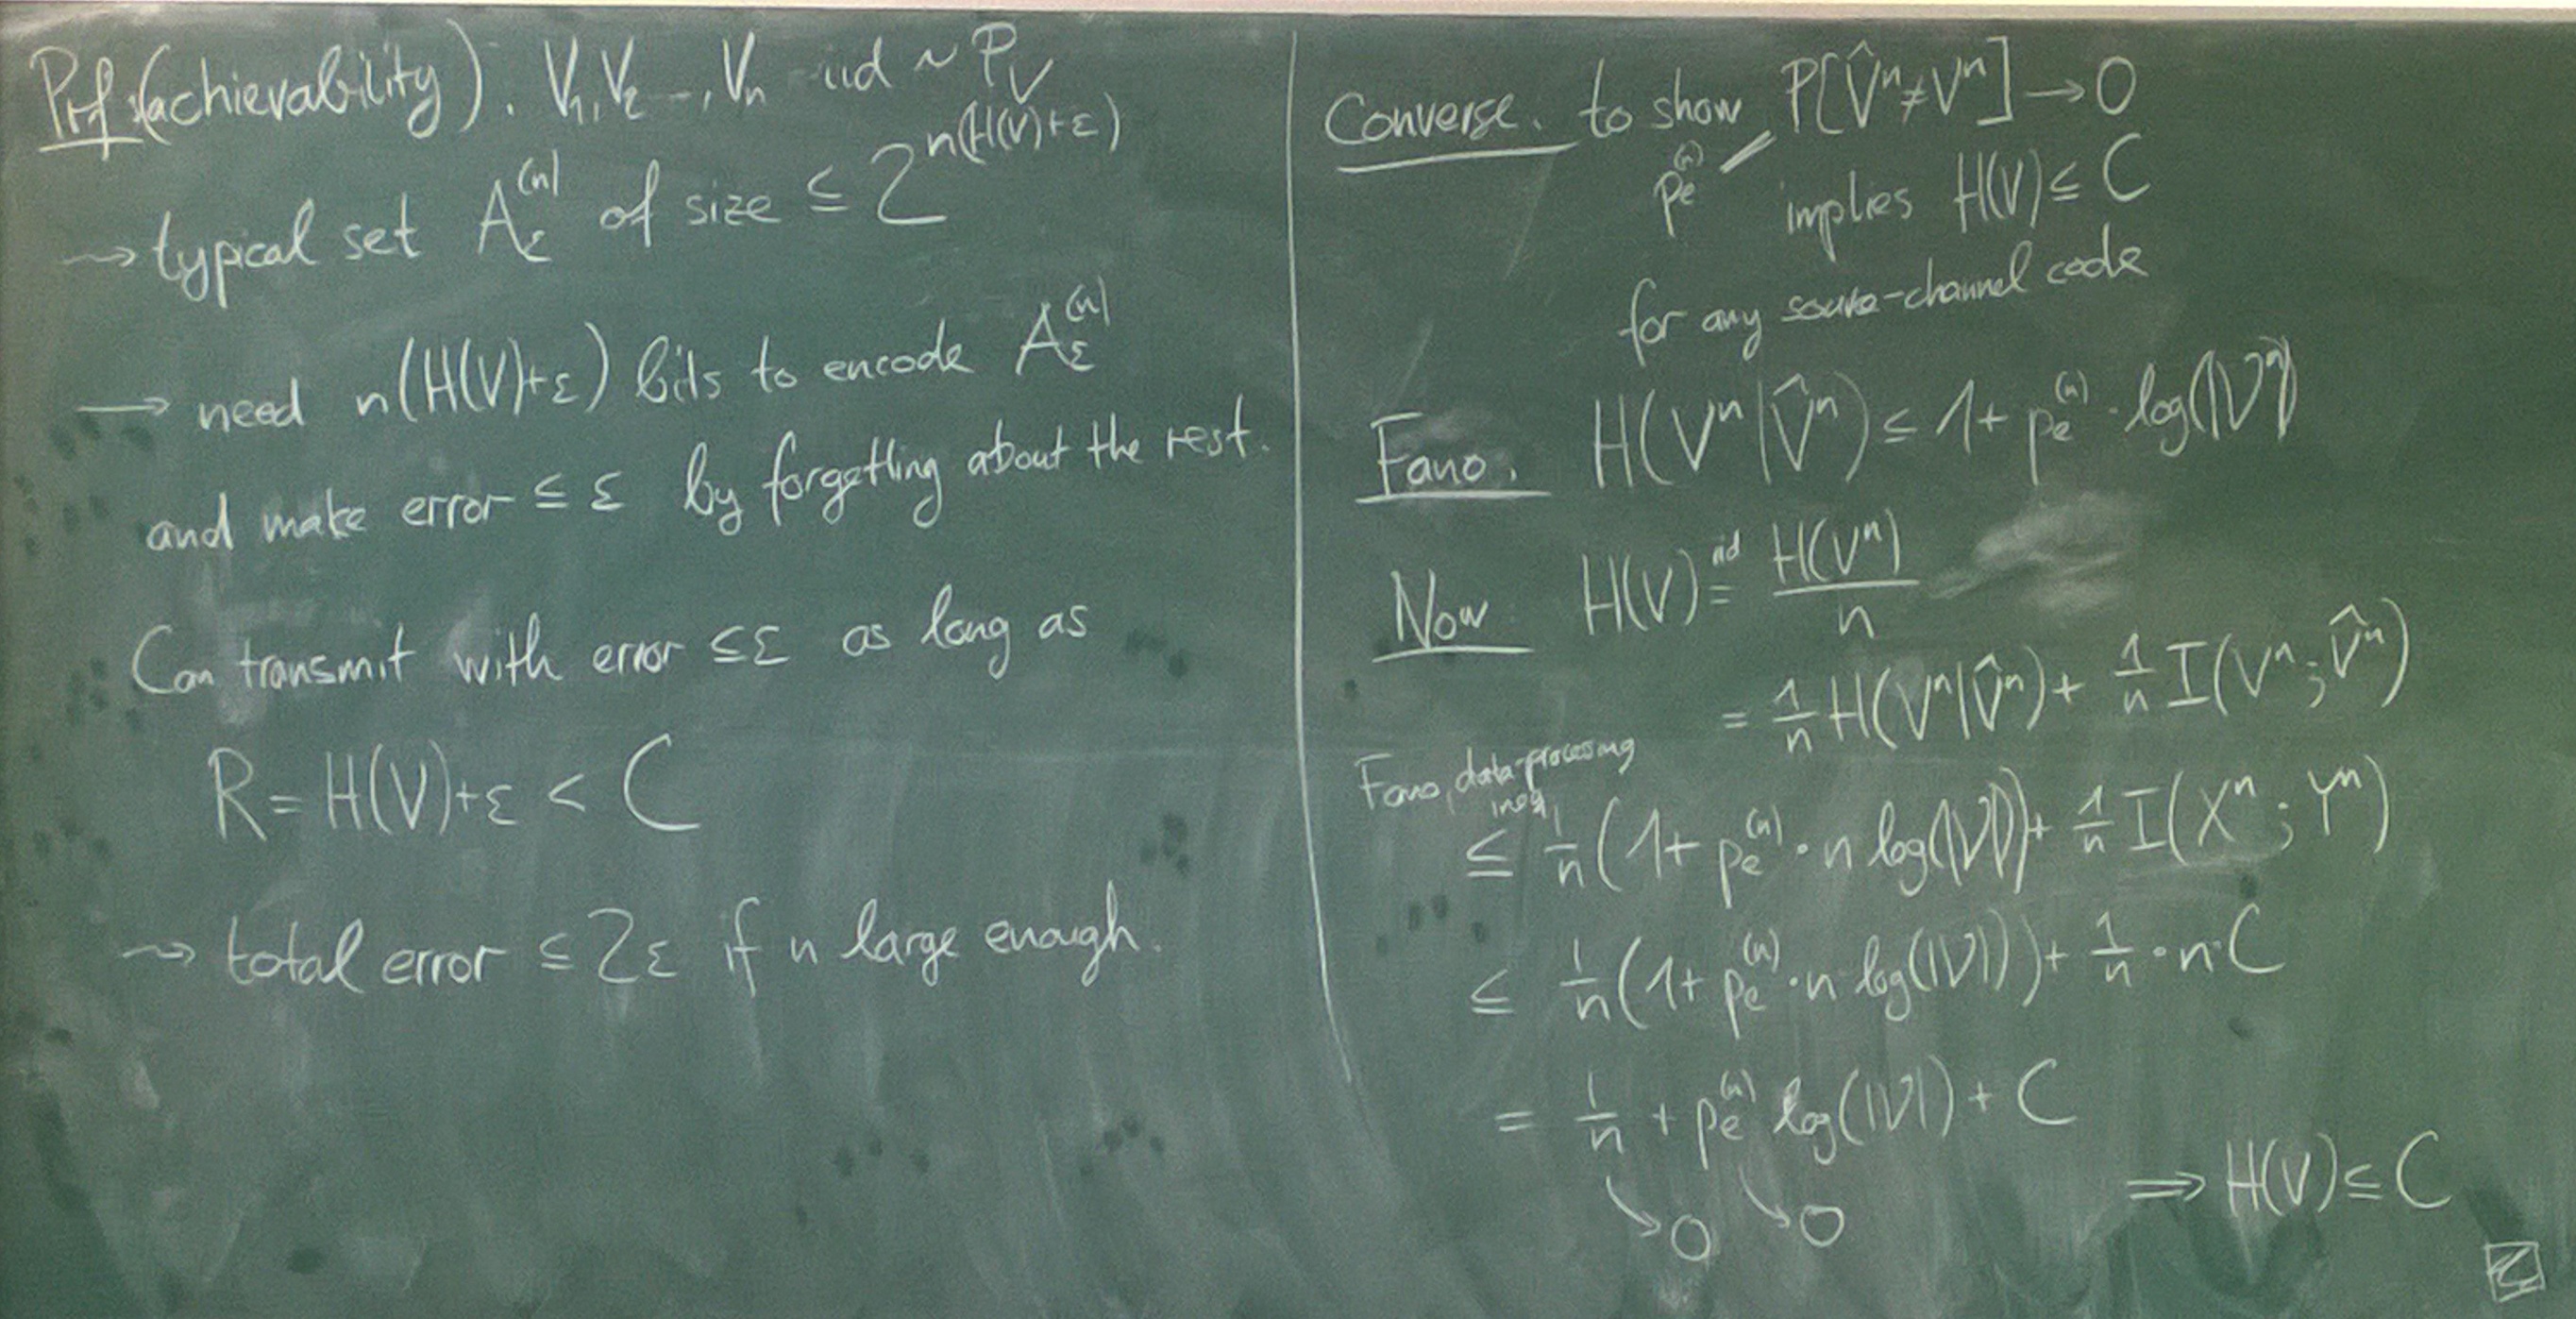 Prf (achievability). V₁,V₂ –, Vₙ iid ~ P_V
⇝ typical set A_ε^(n) of size ≤ 2^{n(H(V)+ε)}
→ need n(H(V)+ε) bits to encode A_ε^(n)
and make error ≤ ε by forgetting about the rest.
Can transmit with error ≤ε as long as
R = H(V)+ε < C
⇝ total error ≤ 2ε if n large enough.
Converse. to show P[V̂ⁿ≠Vⁿ] → 0
pe^(n) implies H(V) ≤ C
for any source-channel code
Fano. H(Vⁿ|V̂ⁿ) ≤ 1+ pe^(n) · log(|𝒱ⁿ|)
Now H(V) =^{iid} H(Vⁿ)/n
= 1/n H(Vⁿ|V̂ⁿ) + 1/n I(Vⁿ; V̂ⁿ)
Fano, data-processing
ineq.
≤ 1/n (1+ pe^(n) · n log(|𝒱|)) + 1/n I(Xⁿ; Yⁿ)
≤ 1/n (1+ pe^(n) · n log(|𝒱|)) + 1/n · n·C
= 1/n + pe^(n) log(|𝒱|) + C
↘ 0 ↘ 0 ⟹ H(V) ≤ C